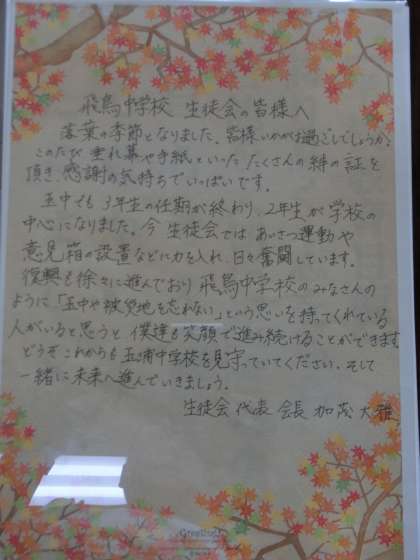 飛鳥中学校 生徒会の皆様へ
落葉の季節となりました。皆様いかがお過ごしでしょうか。
このたび 垂れ幕や手紙といった たくさんの絆の証を
頂き 感謝の気持ちでいっぱいです。
五中でも 3年生の任期が終わり、2年生が学校の
中心になりました。今 生徒会では あいさつ運動や
意見箱の設置などに力を入れ、日々奮闘しています。
復興も徐々に進んでおり 飛鳥中学校のみなさんの
ように「五中や被災地を忘れない」という思いを持ってくれている
人がいると思うと 僕達も笑顔で進み続けることができます
どうぞ これからも 五浦中学校を見守っていてください。そして
一緒に未来へ進んでいきましょう。
生徒会 代表 会長 加茂 大雅
Greeting